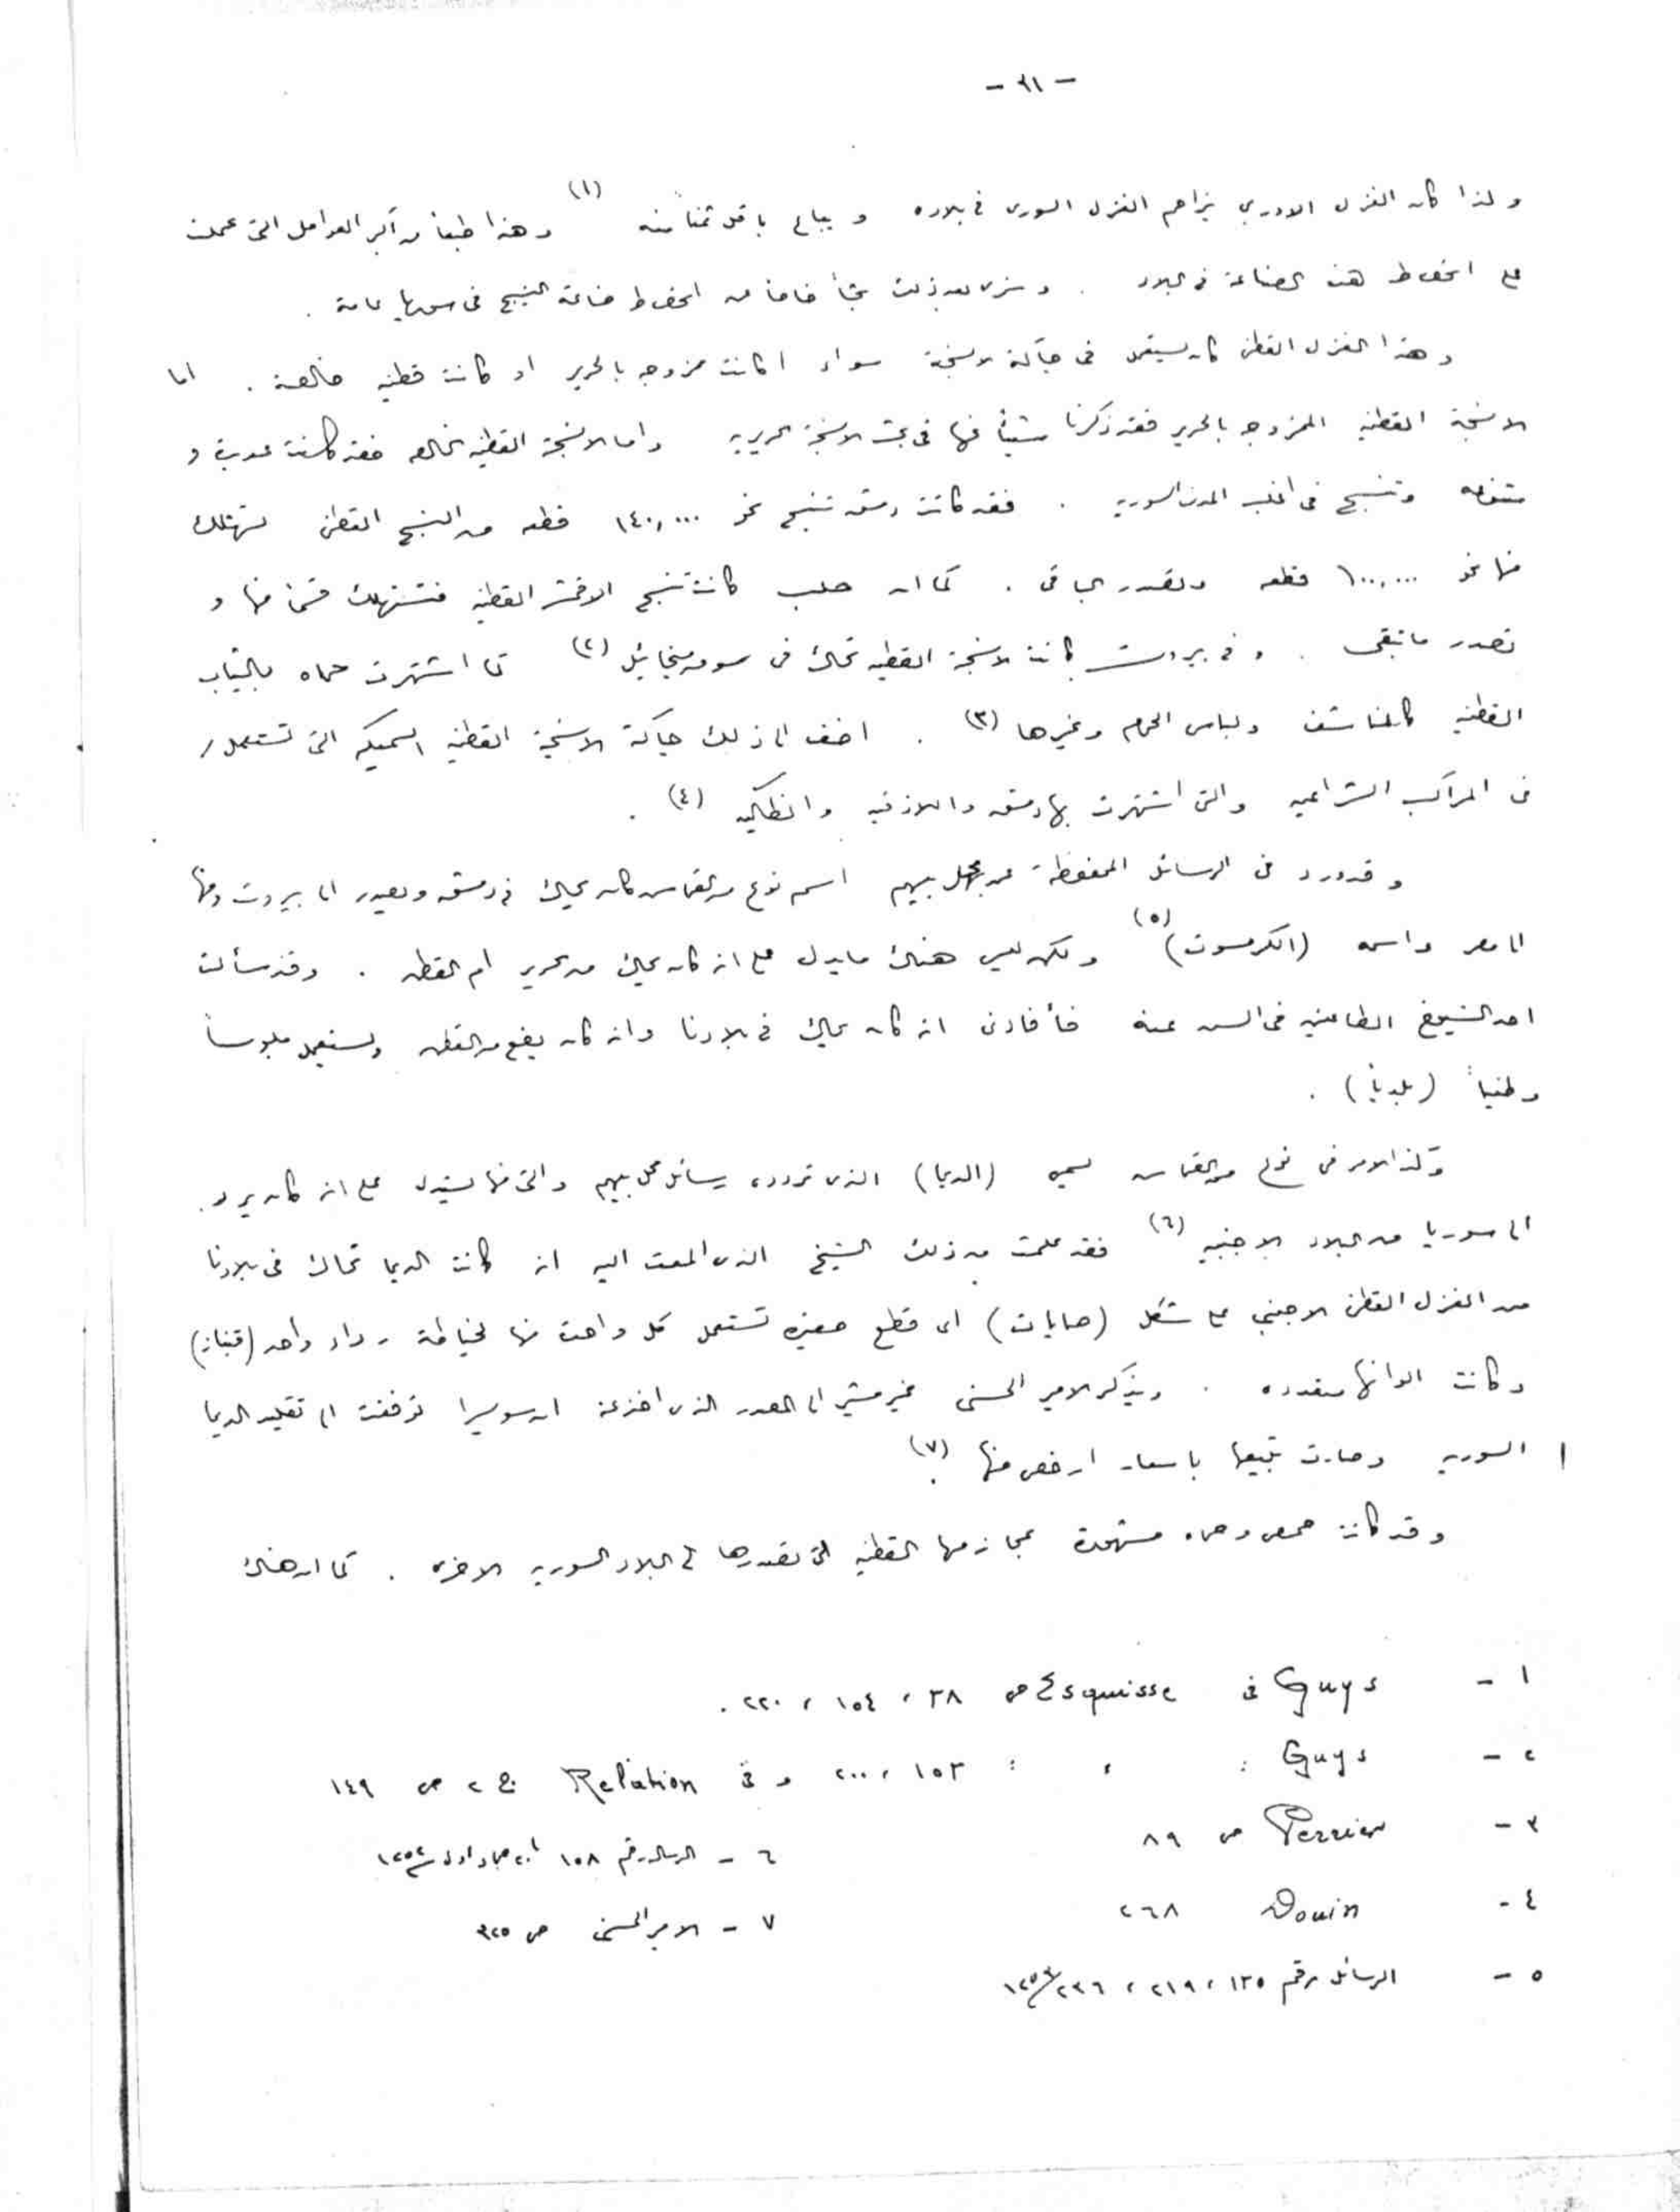 - ٣١ -
ولذا كان الغزل الاوربي يزاحم الغزل السوري في بلاده ويباع باقل ثمنا منه (١) وهذا طبعا من أكبر العوامل التي عملت
على انحطاط هذه الصناعة في البلاد . وسنرى بعد ذلك بحثا خاصا عن انحطاط صناعة النسيج في سوريا عامة .
وهذا الغزل القطني كان يستعمل في حياكة الانسجة سواء اكانت ممزوجه بالحرير او كانت قطنيه خالصة . اما
الانسجة القطنيه الممزوجه بالحرير فقد ذكرنا شيئاً عنها في بحث الانسجة الحريريه واما الانسجة القطنيه الخالصه فقد كانت عديدة و
متنوعه وتنسج في اغلب المدن السوريه . فقد كانت دمشق تنسج نحو ١٤٠,٠٠٠ قطعه من النسيج القطني تستهلك
منها نحو ١٠٠,٠٠٠ قطعه وتصدر الباقي . كما ان حلب كانت تنسج الاقمشة القطنيه فتستهلك قسماً منها و
تصدر ما تبقى . وفي بيروت كانت الانسجة القطنيه تحاك في سوق ميخائيل (٢) كما اشتهرت حماه بالثياب
القطنيه كالمناشف ولباس الحمام وغيرها (٣) . اضف الى ذلك حياكة الانسجة القطنيه السميكه التي تستعمل
في المراكب الشراعيه والتي اشتهرت بها دمشق واللاذقيه وانطاكيه (٤) .
وقد ورد في الرسائل المحفوظة عن محل بيهم اسم نوع من القماش كان يحاك في دمشق ويصدر الى بيروت ومنها
الى مصر واسمه (الكرمسوت) (٥) ولكن ليس هناك ما يدل على انه كان يحاك من الحرير ام القطن . وقد سألت
احد الشيوخ الطاعنين في السن عنه فأفادني انه كان يحاك في بلادنا وانه كان يصنع من القطن ويستعمل ملبوساً
وطنياً (بلدياً) .
وكذا الامر في نوع من القماش يسمى (الديما) الذي تردده رسائل محل بيهم والتي منها يستدل على انه كان يرد
الى سوريا من البلاد الاجنبيه (٦) فقد علمت من ذلك الشيخ الذي المعت اليه انه كانت الديما تحاك في بلادنا
من الغزل القطني الاجنبي على شكل (صايات) اي قطع صغيره تستعمل كل واحدة منها لخياطة رداء واحد (قنباز)
وكانت الوانها متعدده . ويذكر الامير الحسني غير مشير الى المصدر الذي اخذ عنه ان سويسرا توفقت الى تقليد الديما
السوريه وصارت تبيعها باسعار ارخص منها (٧) .
وقد كانت حمص وحماه مشهورة بمحازمها القطنيه التي تصدرها الى البلاد السوريه الاخرى . كما ان هناك
١ - Guys في Esquisse ص ٣٨ ، ١٥٤ ، ٢٢٠ .
٢ - Guys : ، : ١٥٣ ، ٢٠٠ و في Relation ج ٢ ص ١٤٩
٣ - Perrier ص ٨٩
٤ - Douin ٢٦٨
٥ - الرسائل رقم ١٣٥ ، ٢١٩ ، ٢٣٦ / ١٢٥٣
٦ - الرساله رقم ١٥٨ ٢٠ جماد اول ١٢٥٢
٧ - الامير الحسني ص ٣٢٥